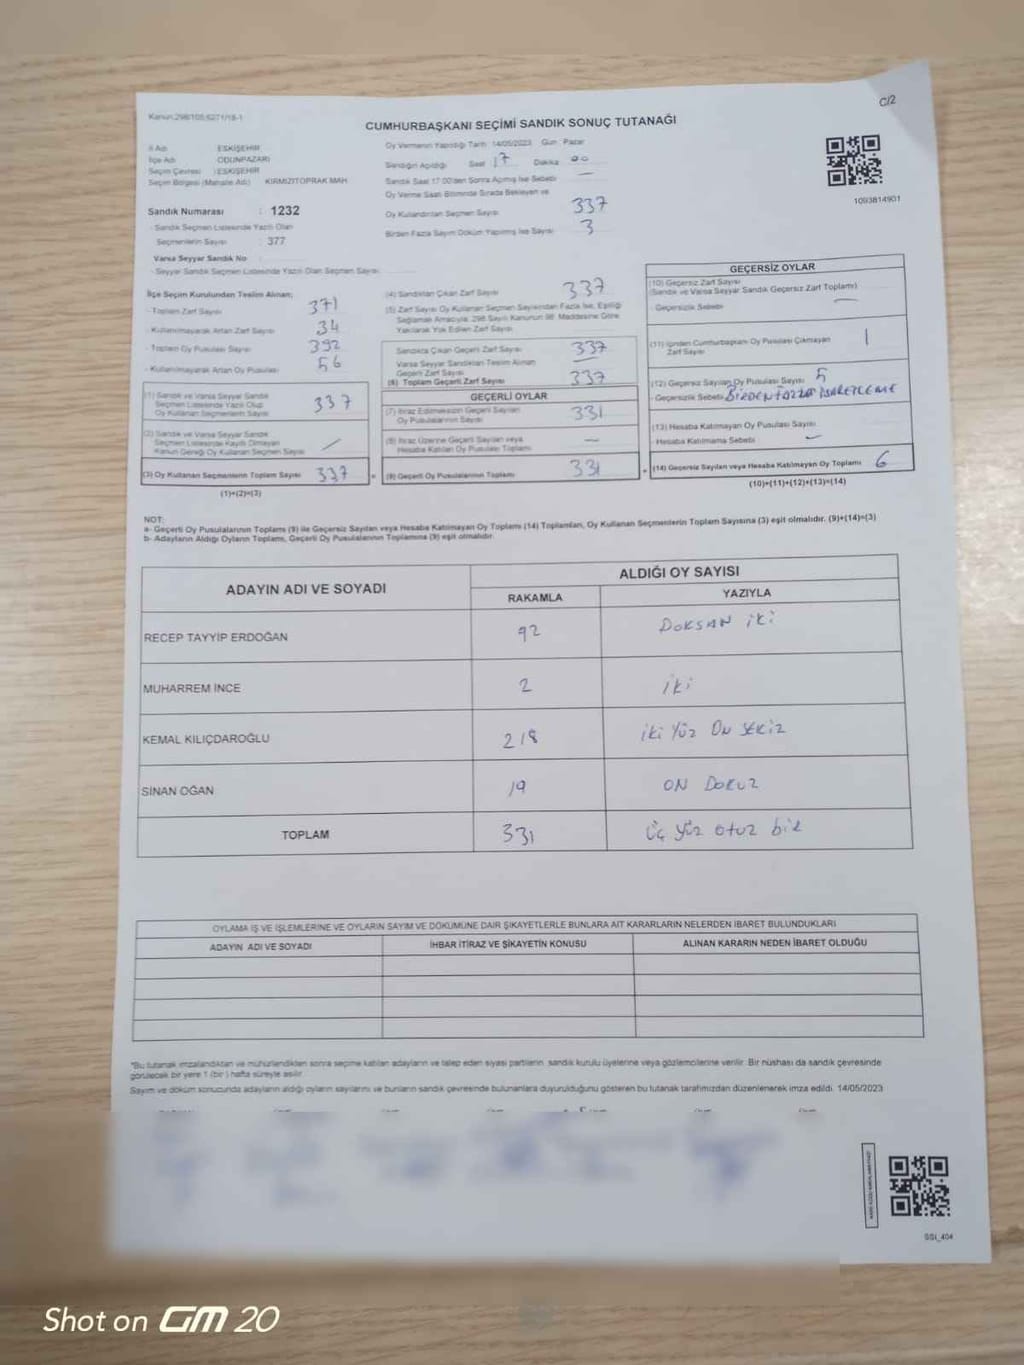 C/2
Kanun.298/105;6271/18-1
CUMHURBAŞKANI SEÇİMİ SANDIK SONUÇ TUTANAĞI
İl Adı : ESKİŞEHİR
İlçe Adı : ODUNPAZARI
Seçim Çevresi : ESKİŞEHİR
Seçim Bölgesi (Mahalle Adı) : KIRMIZITOPRAK MAH.
Sandık Numarası : 1232
- Sandık Seçmen Listesinde Yazılı Olan
Seçmenlerin Sayısı : 377
Varsa Seyyar Sandık No :
- Seyyar Sandık Seçmen Listesinde Yazılı Olan Seçmen Sayısı
Oy Vermenin Yapıldığı Tarih 14/05/2023 Gün Pazar
Sandığın Açıldığı Saat 17 Dakika 00
Sandık Saat 17.00'den Sonra Açılmış İse Sebebi —
Oy Verme Saati Bitiminde Sırada Bekleyen ve
Oy Kullandırılan Seçmen Sayısı 337
Birden Fazla Sayım Döküm Yapılmış İse Sayısı 3
1093814901
İlçe Seçim Kurulundan Teslim Alınan;
- Toplam Zarf Sayısı 371
- Kullanılmayarak Artan Zarf Sayısı 34
- Toplam Oy Pusulası Sayısı 392
- Kullanılmayarak Artan Oy Pusulası 56
(1) Sandık ve Varsa Seyyar Sandık
Seçmen Listesinde Yazılı Olup
Oy Kullanan Seçmenlerin Sayısı 337
(2) Sandık ve Varsa Seyyar Sandık
Seçmen Listesinde Kayıtlı Olmayan
Kanun Gereği Oy Kullanan Seçmen Sayısı /
(3) Oy Kullanan Seçmenlerin Toplam Sayısı 337
(1)+(2)=(3)
(4) Sandıktan Çıkan Zarf Sayısı 337
(5) Zarf Sayısı Oy Kullanan Seçmen Sayısından Fazla İse, Eşitliği
Sağlamak Amacıyla, 298 Sayılı Kanunun 98. Maddesine Göre
Yakılarak Yok Edilen Zarf Sayısı
Sandıkta Çıkan Geçerli Zarf Sayısı 337
Varsa Seyyar Sandıktan Teslim Alınan
Geçerli Zarf Sayısı —
(6) Toplam Geçerli Zarf Sayısı 337
GEÇERLİ OYLAR
(7) İtiraz Edilmeksizin Geçerli Sayılan
Oy Pusulasının Sayısı 331
(8) İtiraz Üzerine Geçerli Sayılan veya
Hesaba Katılan Oy Pusulası Toplamı —
(9) Geçerli Oy Pusulalarının Toplamı 331
GEÇERSİZ OYLAR
(10) Geçersiz Zarf Sayısı
(Sandık ve Varsa Seyyar Sandık Geçersiz Zarf Toplamı)
- Geçersizlik Sebebi —
(11) İçinden Cumhurbaşkanı Oy Pusulası Çıkmayan
Zarf Sayısı 1
(12) Geçersiz Sayılan Oy Pusulası Sayısı 5
- Geçersizlik Sebebi BİRDEN FAZLA İŞARETLEME
(13) Hesaba Katılmayan Oy Pusulası Sayısı
- Hesaba Katılmama Sebebi —
(14) Geçersiz Sayılan veya Hesaba Katılmayan Oy Toplamı 6
(10)+(11)+(12)+(13)=(14)
NOT:
a- Geçerli Oy Pusulalarının Toplamı (9) ile Geçersiz Sayılan veya Hesaba Katılmayan Oy Toplamı (14) Toplamları, Oy Kullanan Seçmenlerin Toplam Sayısına (3) eşit olmalıdır. (9)+(14)=(3)
b- Adayların Aldığı Oyların Toplamı, Geçerli Oy Pusulalarının Toplamına (9) eşit olmalıdır.
ADAYIN ADI VE SOYADI
ALDIĞI OY SAYISI
RAKAMLA YAZIYLA
RECEP TAYYİP ERDOĞAN 92 DOKSAN iKi
MUHARREM İNCE 2 iki
KEMAL KILIÇDAROĞLU 218 iki Yüz ON SEKiZ
SİNAN OĞAN 19 ON DOKUZ
TOPLAM 331 Üç yüz otuz bir
OYLAMA İŞ VE İŞLEMLERİNE VE OYLARIN SAYIM VE DÖKÜMÜNE DAİR ŞİKAYETLERLE BUNLARA AİT KARARLARIN NELERDEN İBARET BULUNDUKLARI
ADAYIN ADI VE SOYADI İHBAR İTİRAZ VE ŞİKAYETİN KONUSU ALINAN KARARIN NEDEN İBARET OLDUĞU
*Bu tutanak imzalandıktan ve mühürlendikten sonra seçime katılan adayların ve talep eden siyasi partilerin sandık kurulu üyelerine veya gözlemcilerine verilir. Bir nüshası da sandık çevresinde
görülecek bir yere 1 (bir) hafta süreyle asılır.
Sayım ve döküm sonucunda adayların aldığı oyların sayılarını ve bunların sandık çevresinde bulunanlara duyurulduğunu gösteren bu tutanak tarafımızdan düzenlenerek imza edildi. 14/05/2023
SSI_404
Shot on GM 20